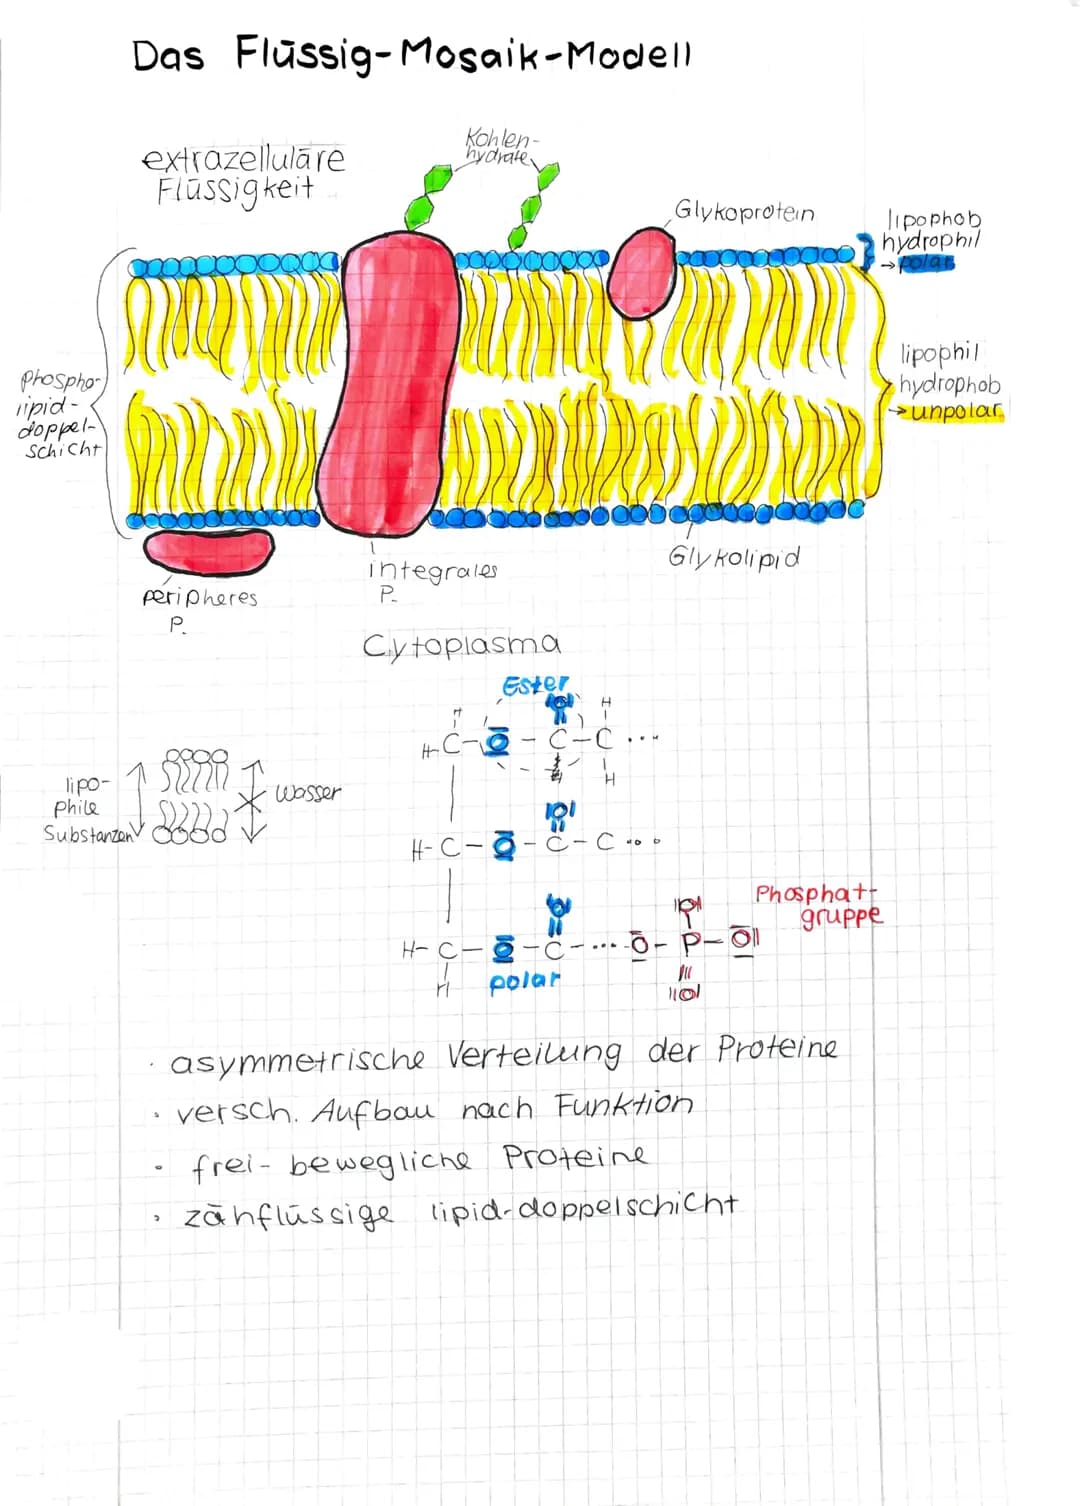 Das Flüssig-Mosaik-Modell
Kohlen-
hydrate
extrazelluläre
Flüssigkeit
Glykoprotein
lipophob
hydrophil
→ polar
Phospho-
lipid-
doppel-
schicht
lipophil
hydrophob
→ unpolar
peripheres
P.
integrales
P.
Glykolipid
Cytoplasma
Ester
H H
H-C-O-C-C...
H
lipo-
phile
Substanzen
Wasser
H-C-O-C-C...
Phosphat-
gruppe
H-C-O-C-...O-P-O
H
polar
· asymmetrische Verteilung der Proteine
· versch. Aufbau nach Funktion
· frei-bewegliche Proteine
· zähflüssige lipid-doppelschicht